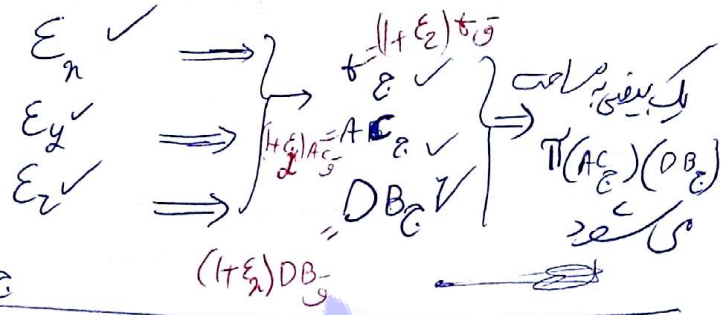 εx ✓ ⇒
εy ✓ ⇒
εz ✓ ⇒
t ج = (1+εz) t ق ✓
AC ج = (1+ε) AC ق ✓
DB ج = (1+εx) DB ق ✓
⇒ یک بیضی به مساحت
π(AC ج)(DB ج)
می شود